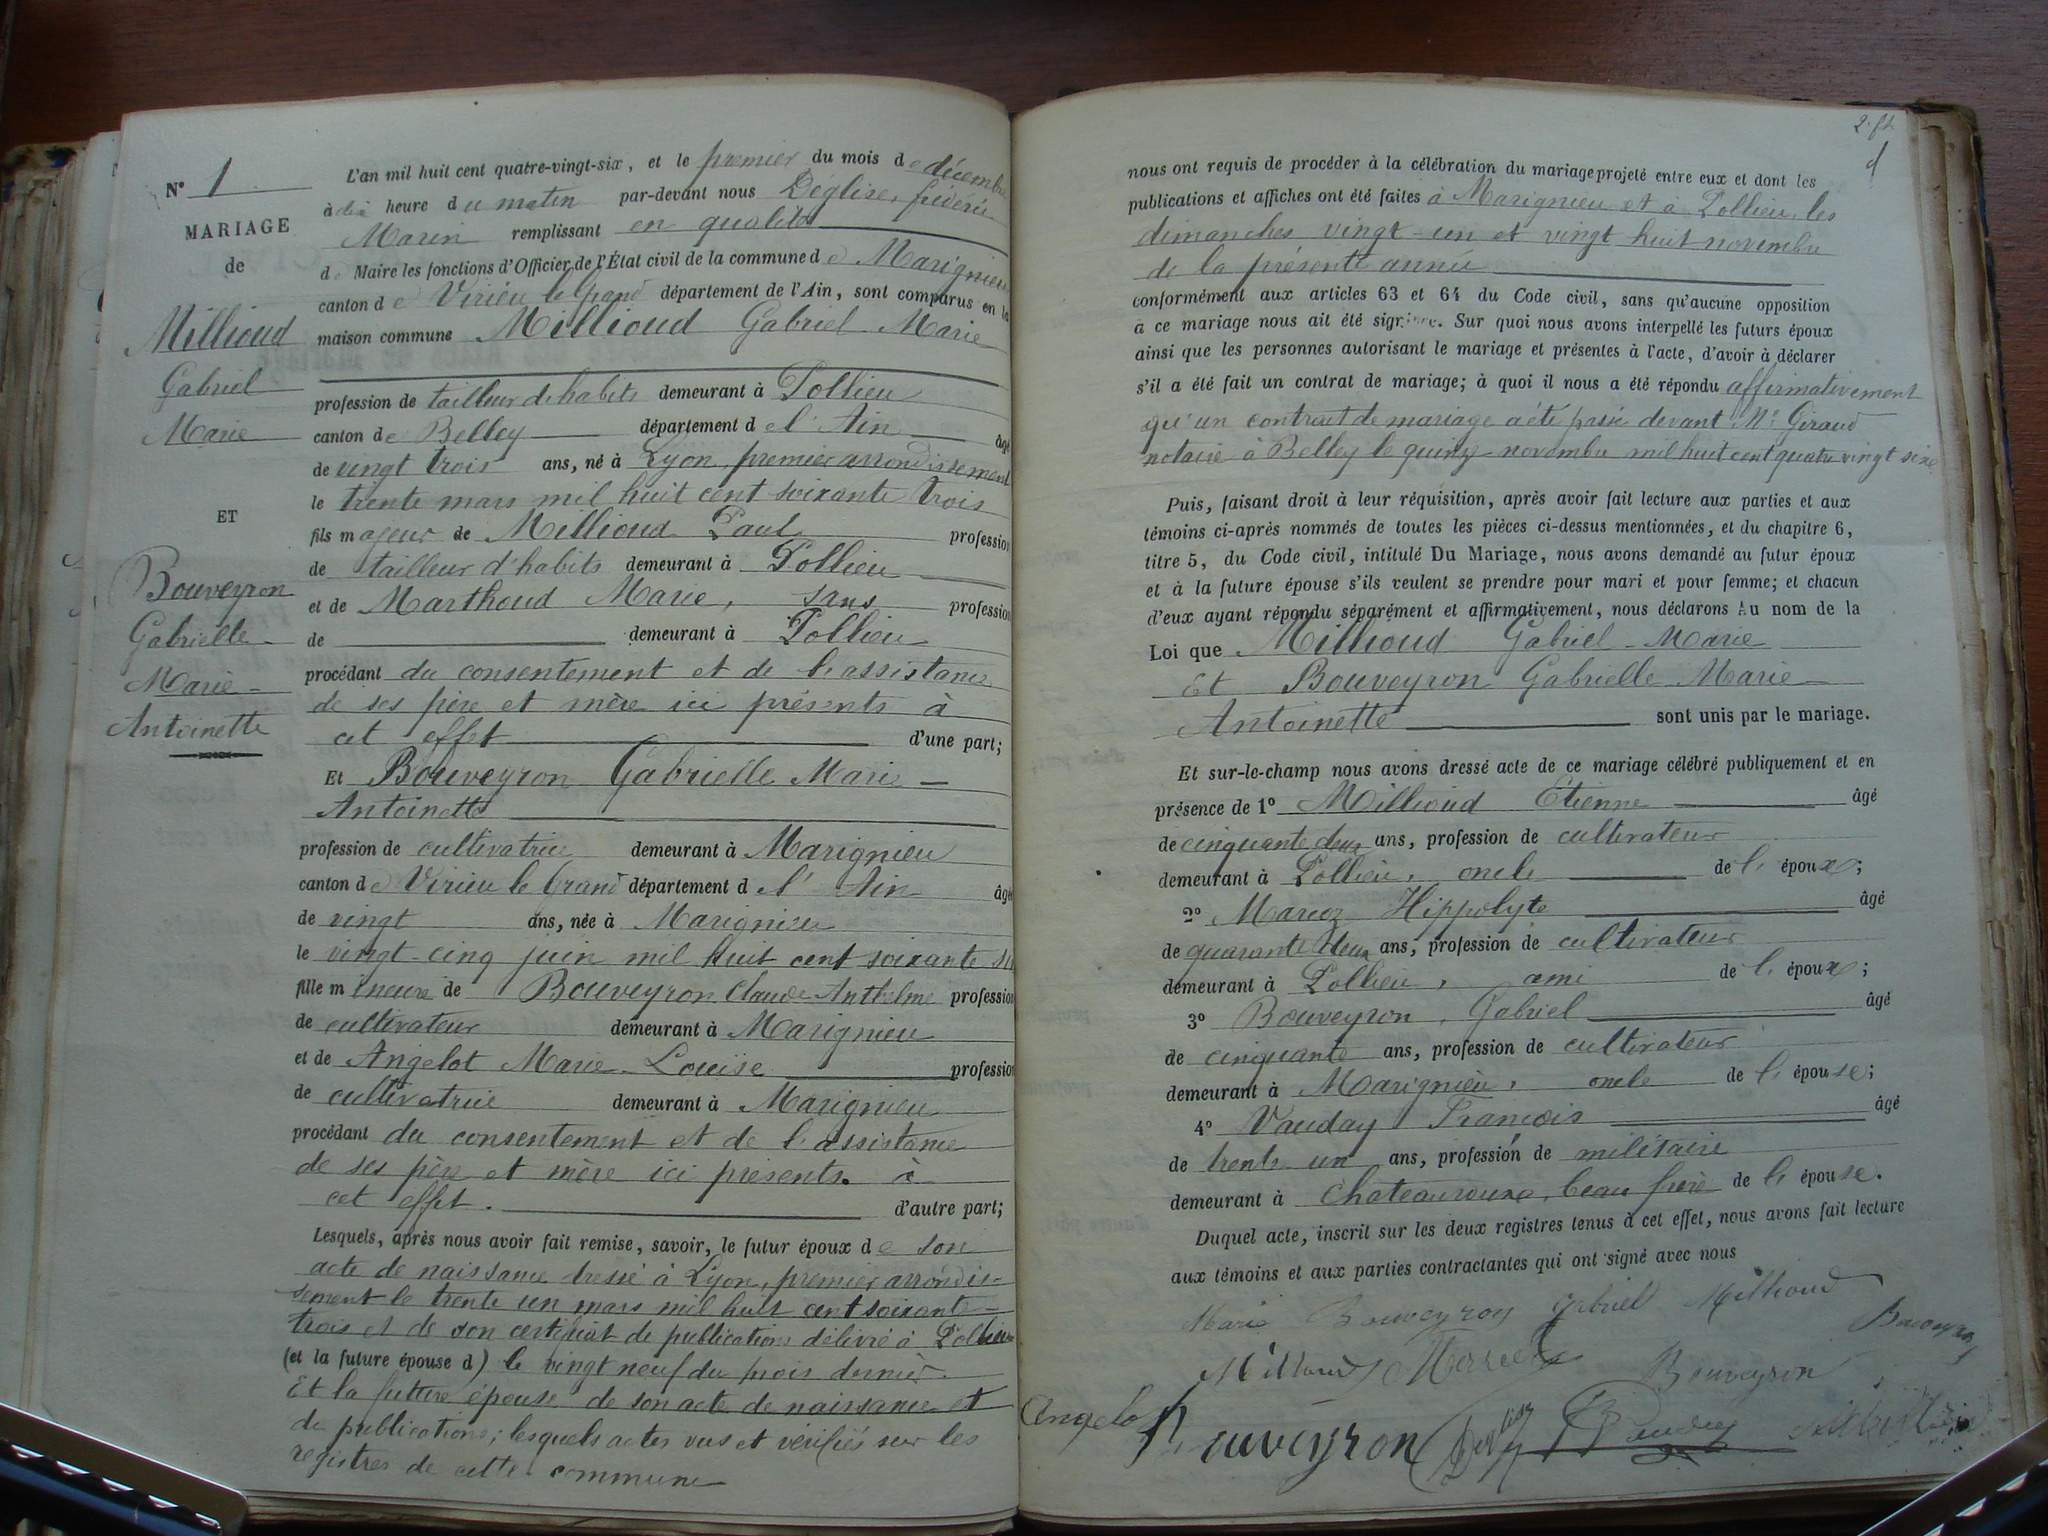 N° 1
MARIAGE
de
Millioud
Gabriel
Marie
ET
Bouveyron
Gabrielle
Marie
Antoinette
L'an mil huit cent quatre-vingt-six, et le premier du mois de décembre
à dix heure du matin par-devant nous Déglise, fréderic
Marin remplissant en qualité
de Maire les fonctions d'Officier de l'État civil de la commune de Marignieu
canton de Virieu le Grand département de l'Ain, sont comparus en la
maison commune Millioud Gabriel Marie
profession de tailleur d'habits demeurant à Pollieu
canton de Belley département de l'Ain âgé
de vingt trois ans, né à Lyon, premier arrondissement
le trente mars mil huit cent soixante trois
fils majeur de Millioud Paul profession
de tailleur d'habits demeurant à Pollieu
et de Marthoud Marie, sans profession
de demeurant à Pollieu
procédant du consentement et de l'assistance
de ses père et mère ici présents à
cet effet d'une part;
Et Bouveyron Gabrielle Marie
Antoinette
profession de cultivatrice demeurant à Marignieu
canton de Virieu le Grand département de l'Ain âgé
de vingt ans, née à Marignieu
le vingt-cinq juin mil huit cent soixante six
fille mineure de Bouveyron Claude Anthelme profession
de cultivateur demeurant à Marignieu
et de Angelot Marie-Louise profession
de cultivatrice demeurant à Marignieu
procédant du consentement et de l'assistance
de ses père et mère ici présents. à
cet effet. d'autre part;
Lesquels, après nous avoir fait remise, savoir, le futur époux de son
acte de naissance dressé à Lyon, premier arrondis-
sement le trente un mars mil huit cent soixante-
trois et de son certificat de publications délivré à Pollieu
(et la future épouse d) le vingt neuf du mois dernier.
Et la future épouse de son acte de naissance et
de publications; lesquels actes vus et vérifiés sur les
registres de cette commune
nous ont requis de procéder à la célébration du mariage projeté entre eux et dont les
publications et affiches ont été faites à Marignieu et à Pollieu, les
dimanches vingt-un et vingt huit novembre
de la présente année
conformément aux articles 63 et 64 du Code civil, sans qu'aucune opposition
à ce mariage nous ait été signifiée. Sur quoi nous avons interpellé les futurs époux
ainsi que les personnes autorisant le mariage et présentes à l'acte, d'avoir à déclarer
s'il a été fait un contrat de mariage; à quoi il nous a été répondu affirmativement
qu'un contrat de mariage a été passé devant Me Giraud
notaire à Belley le quinze novembre mil huit cent quatre vingt six
Puis, faisant droit à leur réquisition, après avoir fait lecture aux parties et aux
témoins ci-après nommés de toutes les pièces ci-dessus mentionnées, et du chapitre 6,
titre 5, du Code civil, intitulé Du Mariage, nous avons demandé au futur époux
et à la future épouse s'ils veulent se prendre pour mari et pour femme; et chacun
d'eux ayant répondu séparément et affirmativement, nous déclarons Au nom de la
Loi que Millioud Gabriel-Marie
Et Bouveyron Gabrielle Marie
Antoinette sont unis par le mariage.
Et sur-le-champ nous avons dressé acte de ce mariage célébré publiquement et en
présence de 1° Millioud Etienne âgé
de cinquante deux ans, profession de cultivateur
demeurant à Pollieu, oncle de l'époux;
2° Marcoz Hippolyte âgé
de quarante deux ans, profession de cultivateur
demeurant à Pollieu, ami de l'époux;
3° Bouveyron, Gabriel âgé
de cinquante ans, profession de cultivateur
demeurant à Marignieu, oncle de l'épouse;
4° Vauday François âgé
de trente un ans, profession de militaire
demeurant à Chateauroux, beau frère de l'épouse.
Duquel acte, inscrit sur les deux registres tenus à cet effet, nous avons fait lecture
aux témoins et aux parties contractantes qui ont signé avec nous
Marie Bouveyron Gabriel Millioud
Bouveyron
Millioud
Bouveyron
Angelo Bouveyron